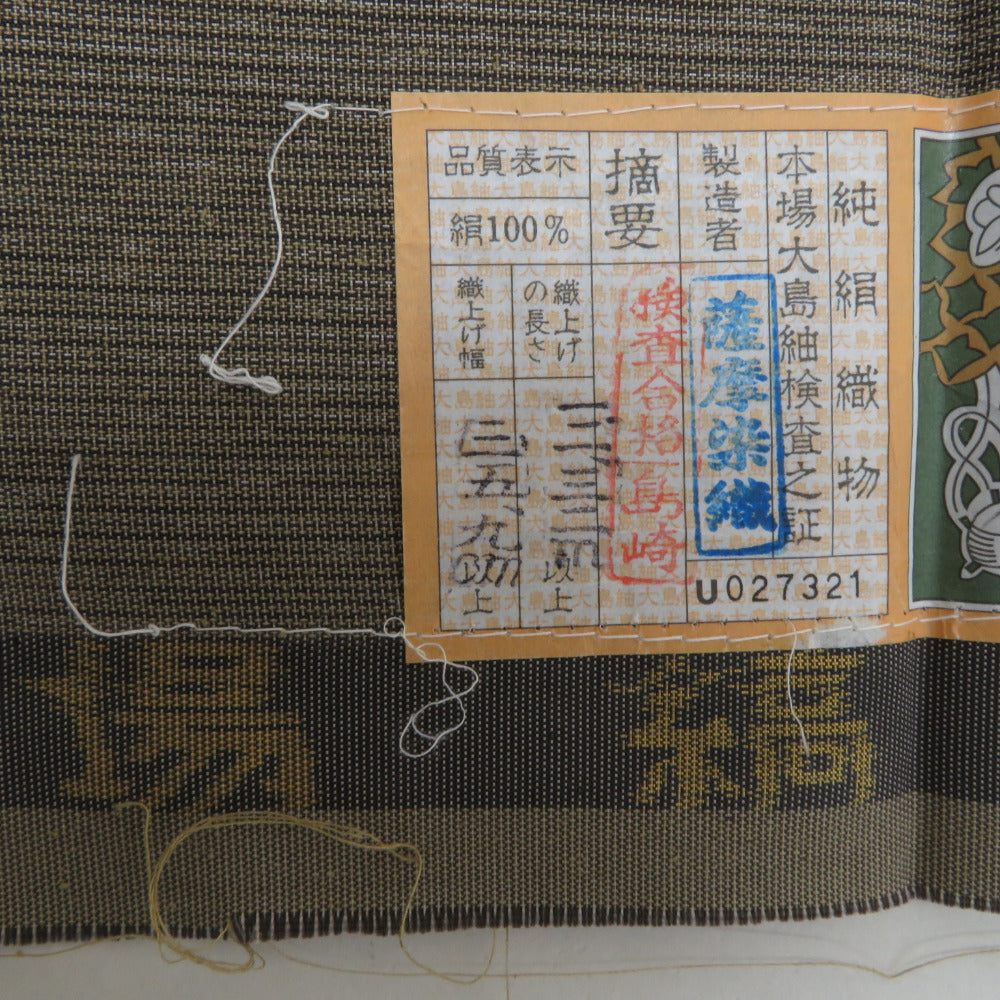 純絹織物
本場大島紬検査之証
製造者
薩摩染織
U027321
摘要
検査合格
島崎
品質表示
絹100%
織上げ
の長さ
以上
織上げ幅
三五、九
以上
場
縞